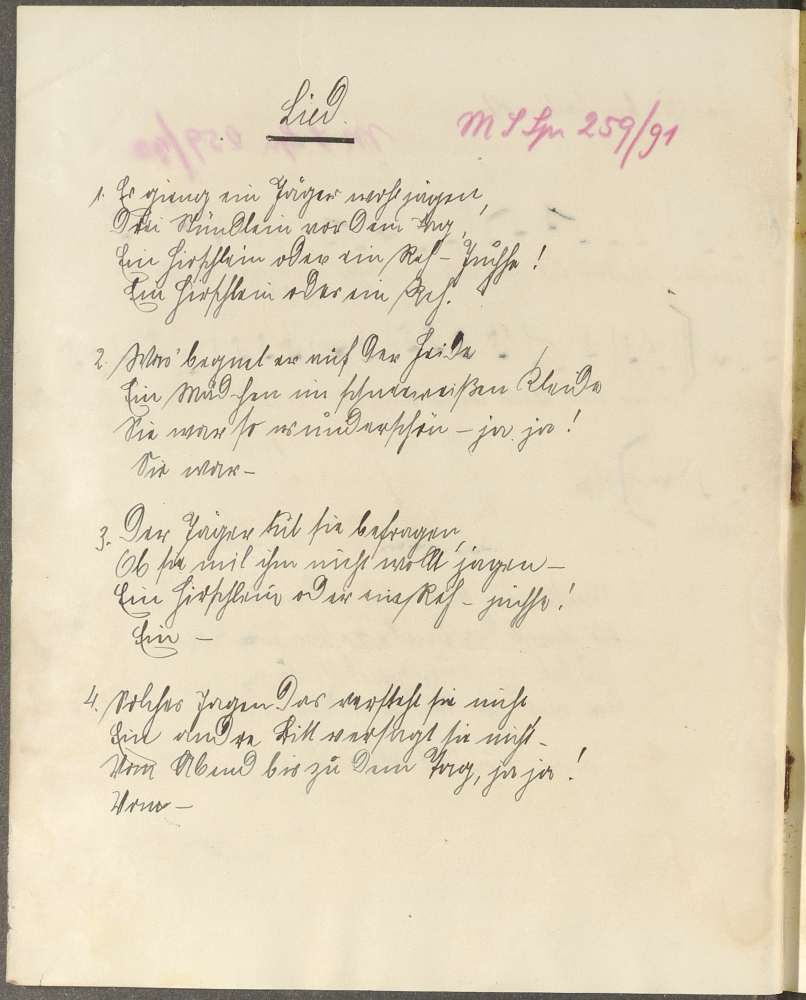 Lied.
M S Spr 259/91
1. Es gieng ein Jäger wohl jagen,
Drei Stündlein vor dem Tag,
Ein Hirschlein oder ein Reh – Juhhe!
Ein Hirschlein oder ein Reh.
2. Was begnet er auf der Heide
Ein Mädchen im schneeweißen Kleide
Sie war so wunderschön – ja ja!
Sie war –
3. Der Jäger tut sie befragen,
Ob sie mit ihm nicht wollt' jagen –
Ein Hirschlein oder ein Reh – juhhe!
Ein –
4. Solches Jagen das versteht sie nicht,
Ein andre Bitt versagt sie nicht –
Vom Abend bis zu dem Tag, ja ja!
Vom –